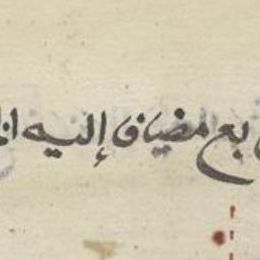 بع مضاف إليه